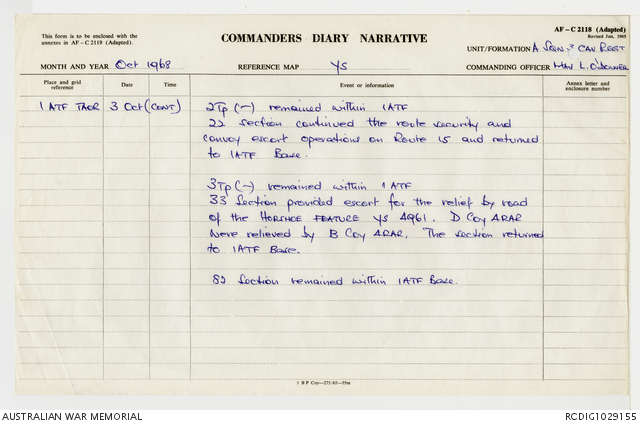 This form is to be enclosed with the
annexes in AF – C 2119 (Adapted).
COMMANDERS DIARY NARRATIVE
AF – C 2118 (Adapted)
Revised Jan, 1965
UNIT/FORMATION A SQN, 3 CAV REGT
MONTH AND YEAR Oct 1968
REFERENCE MAP YS
COMMANDING OFFICER MAJ L. O'DONNER
Place and grid
reference
Date
Time
Event or information
Annex letter and
enclosure number
1 ATF TAOR 3 Oct (CONT)
2Tp (-) remained within 1ATF
22 section continued the route security and
convoy escort operations on Route 15 and returned
to 1ATF Base.
3Tp (-) remained within 1ATF
33 Section provided escort for the relief by road
of the HORSHOE FEATURE YS 4961. D Coy 4RAR
were relieved by B Coy 4RAR. The section returned
to 1ATF Base.
82 Section remained within 1ATF Base.
AUSTRALIAN WAR MEMORIAL
RCDIG1029155